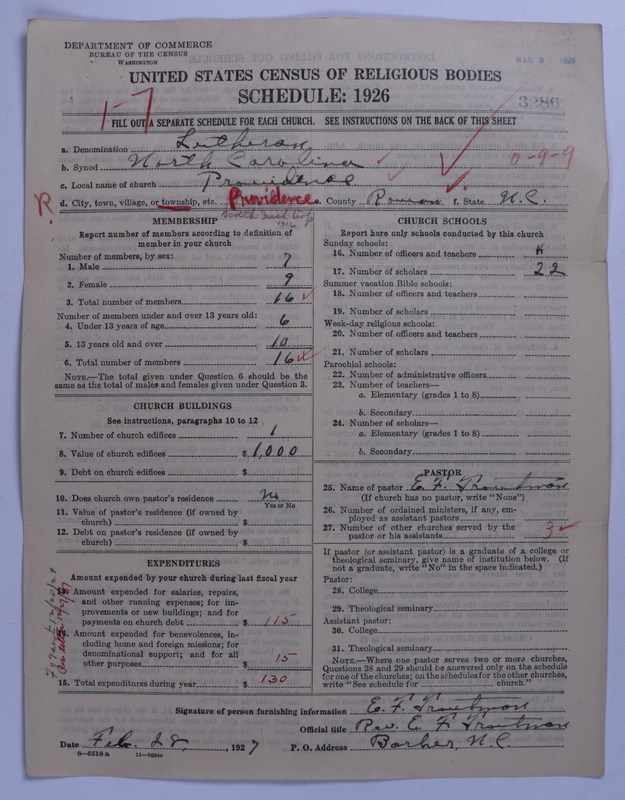 DEPARTMENT OF COMMERCE
BUREAU OF THE CENSUS
WASHINGTON
MAR 2 1927
UNITED STATES CENSUS OF RELIGIOUS BODIES
SCHEDULE: 1926
3286
1-7
FILL OUT A SEPARATE SCHEDULE FOR EACH CHURCH. SEE INSTRUCTIONS ON THE BACK OF THIS SHEET
a. Denomination Lutheran
b. Synod North Carolina
0-9-9
c. Local name of church Providence
R. d. City, town, village, or township, etc. Providence e. County Rowan f. State N.C.
1916
MEMBERSHIP
Report number of members according to definition of
member in your church
Number of members, by sex:
1. Male 7
2. Female 9
3. Total number of members 16
Number of members under and over 13 years old:
4. Under 13 years of age 6
5. 13 years old and over 10
6. Total number of members 16
NOTE.—The total given under Question 6 should be the
same as the total of males and females given under Question 3.
CHURCH BUILDINGS
See instructions, paragraphs 10 to 12
7. Number of church edifices 1
8. Value of church edifices $ 1,000
9. Debt on church edifices $
10. Does church own pastor's residence No
Yes or No
11. Value of pastor's residence (if owned by
church) $
12. Debt on pastor's residence (if owned by
church) $
EXPENDITURES
Amount expended by your church during last fiscal year
13. Amount expended for salaries, repairs,
and other running expenses; for im-
provements or new buildings; and for
payments on church debt $ 115
14. Amount expended for benevolences, in-
cluding home and foreign missions; for
denominational support; and for all
other purposes $ 15
15. Total expenditures during year $ 130
CHURCH SCHOOLS
Report here only schools conducted by this church
Sunday schools:
16. Number of officers and teachers 4
17. Number of scholars 22
Summer vacation Bible schools:
18. Number of officers and teachers
19. Number of scholars
Week-day religious schools:
20. Number of officers and teachers
21. Number of scholars
Parochial schools:
22. Number of administrative officers
23. Number of teachers—
a. Elementary (grades 1 to 8)
b. Secondary
24. Number of scholars—
a. Elementary (grades 1 to 8)
b. Secondary
PASTOR
25. Name of pastor E. F. Troutman
(If church has no pastor, write "None")
26. Number of ordained ministers, if any, em-
ployed as assistant pastors
27. Number of other churches served by the
pastor or his assistants 3
If pastor (or assistant pastor) is a graduate of a college or
theological seminary, give name of institution below. (If
not a graduate, write "No" in the space indicated.)
Pastor:
28. College
29. Theological seminary
Assistant pastor:
30. College
31. Theological seminary
NOTE.—Where one pastor serves two or more churches,
Questions 28 and 29 should be answered only on the schedule
for one of the churches; on the schedules for the other churches,
write "See schedule for church."
Signature of person furnishing information E. F. Troutman
Official title Rev. E. F. Troutman
Date Feb. 28, 1927 P. O. Address Barber, N.C.
8—5518a 11—9054a